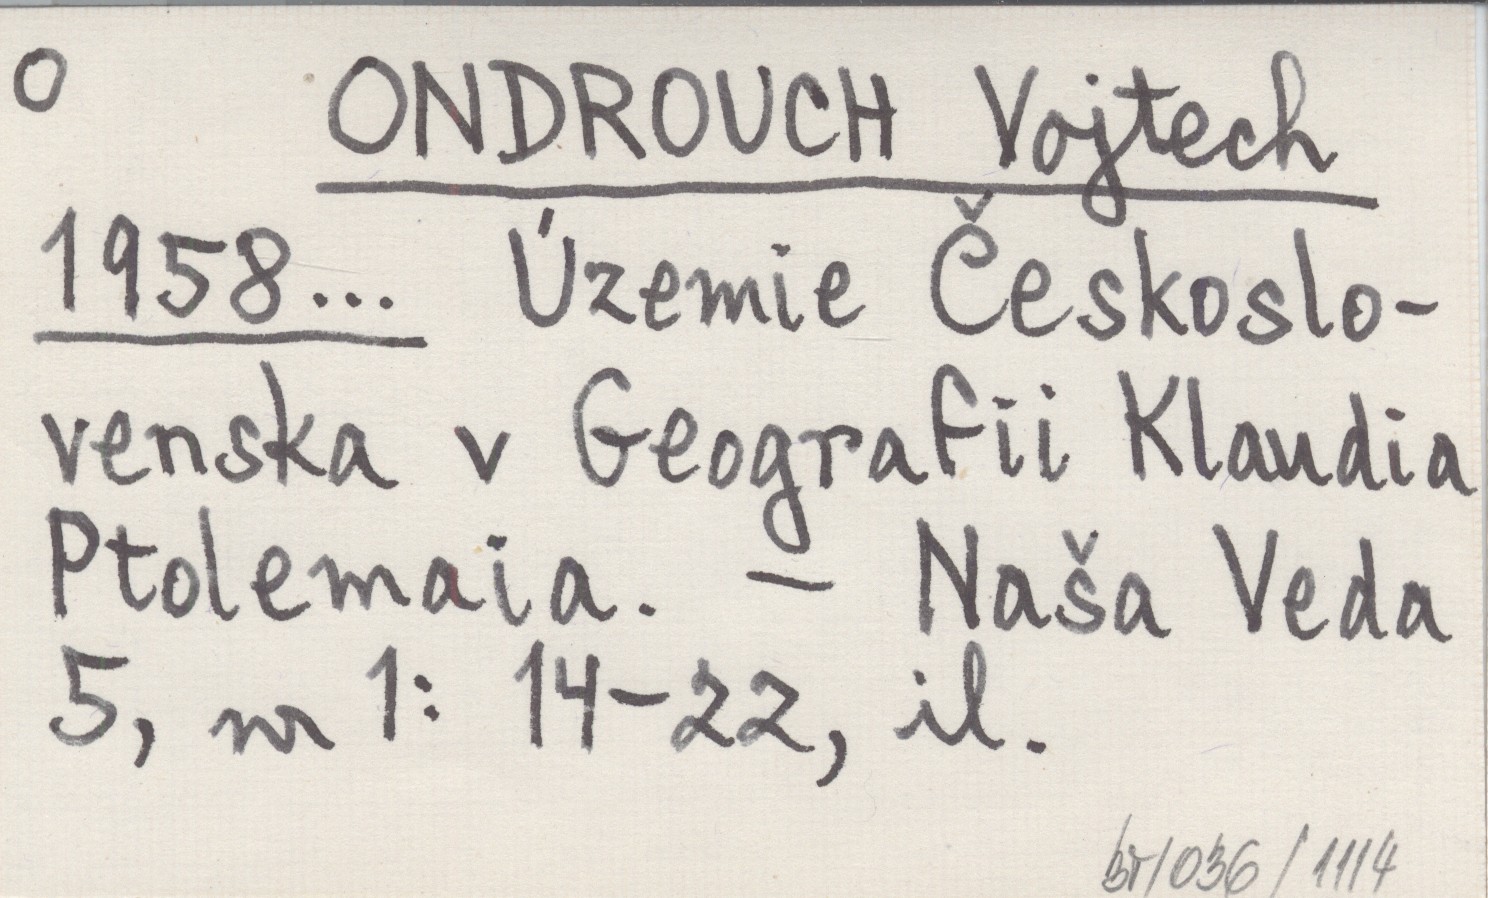 O
ONDROUCH Vojtech
1958... Územie Českoslo-
venska v Geografii Klaudia
Ptolemaia. — Naša Veda
5, nr 1: 14-22, il.
/036/1114